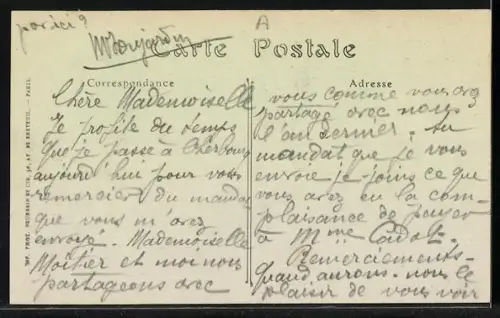 par ici?
A
Carte Postale
Correspondance
Adresse
Chère Mademoiselle
Je profite du temps
que je passe à Cherbourg
aujourd'hui pour vous
remercier du mandat
que vous m'avez
envoyé. Mademoiselle
Moitier et moi nous
partageons avec
vous comme vous avez
partagé avec nous
l'an dernier. au
mandat que je vous
envoie je joins ce que
vous avez eu la com-
plaisance de payer
à Mme Cadot.
Remerciements.
Quand aurons-nous le
plaisir de vous voir